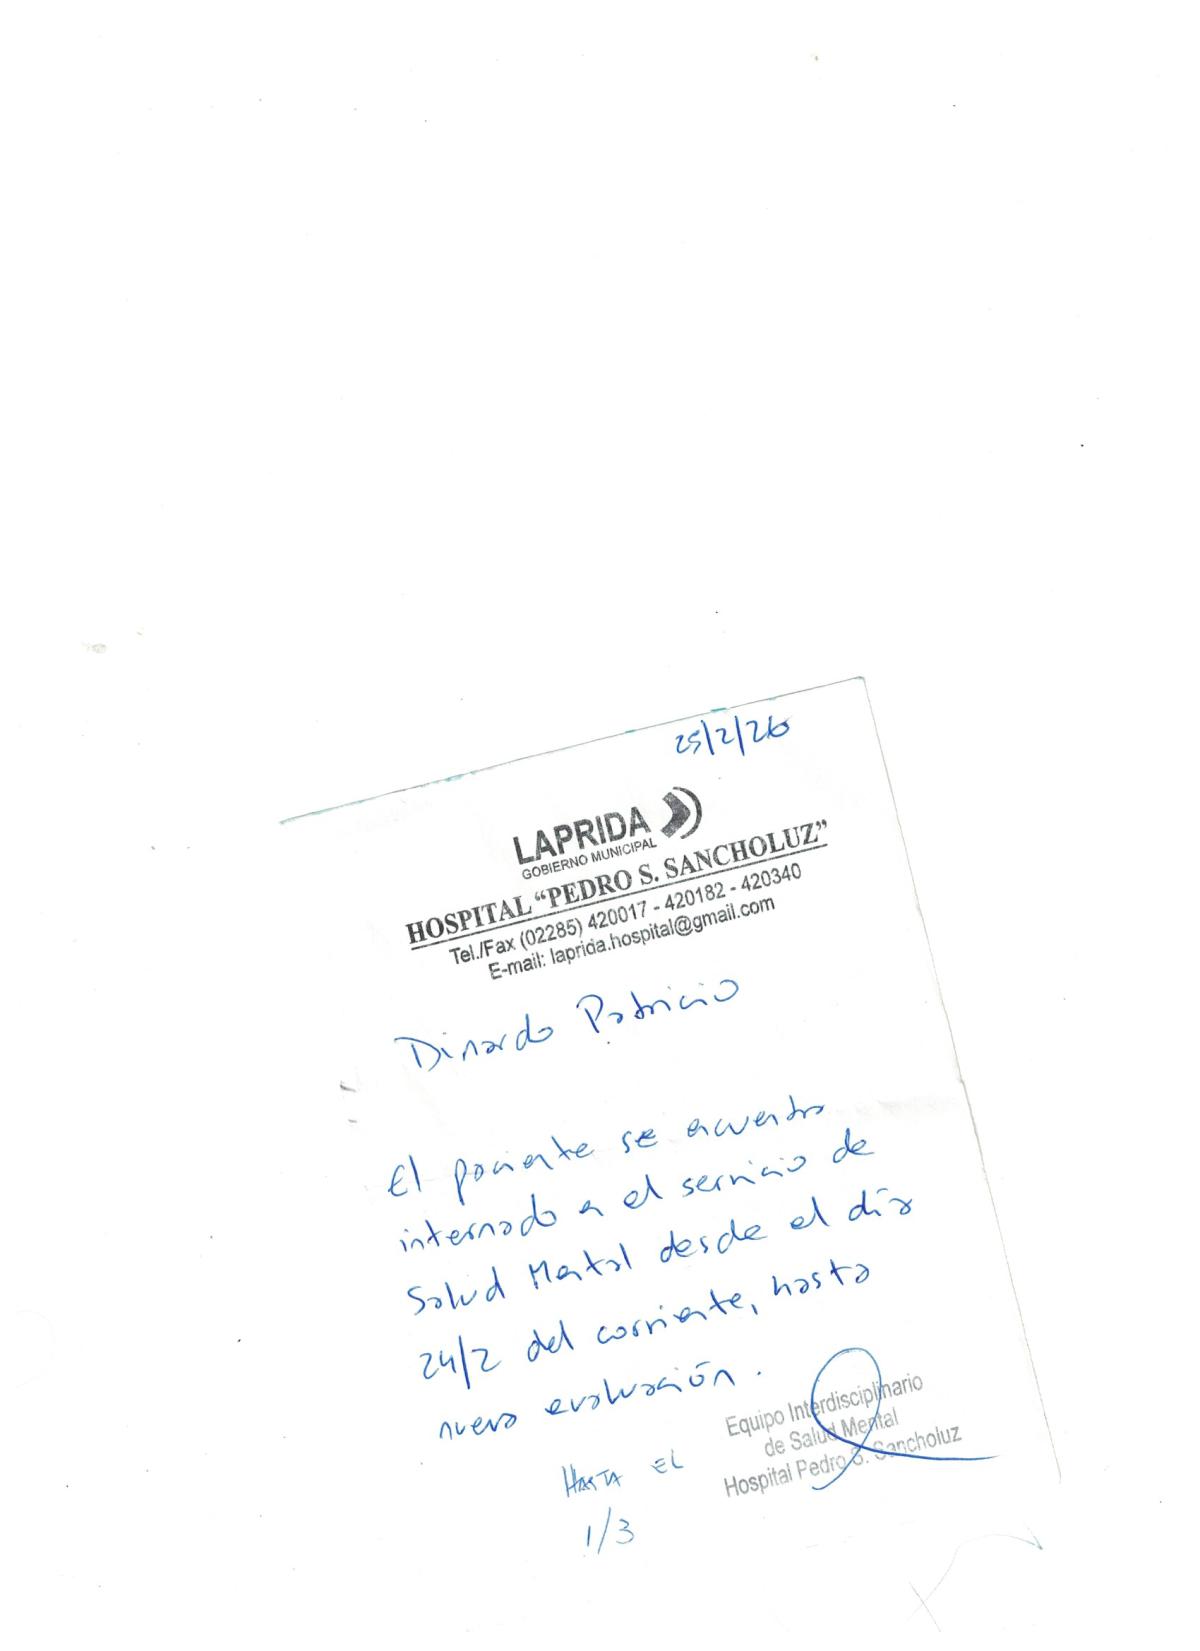 25/2/26
LAPRIDA
GOBIERNO MUNICIPAL
HOSPITAL “PEDRO S. SANCHOLUZ”
Tel./Fax (02285) 420017 - 420182 - 420340
E-mail: laprida.hospital@gmail.com
Dinardo Patricio
El paciente se encuentra
internado en el servicio de
Salud Mental desde el día
24/2 del corriente, hasta
nueva evaluación.
Equipo Interdisciplinario
de Salud Mental
Hospital Pedro S. Sancholuz
HASTA EL
1/3